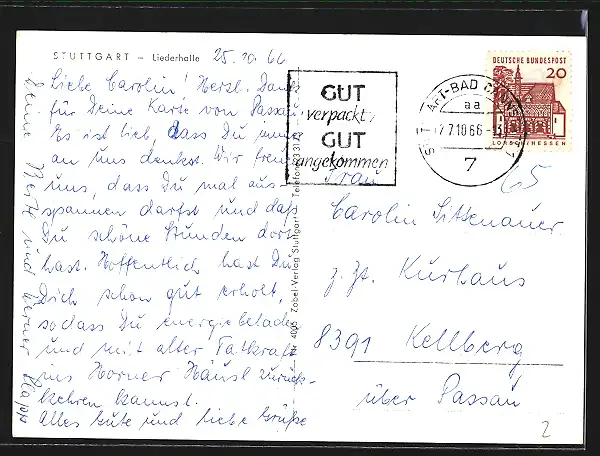 STUTTGART – Liederhalle
25.10.66
Liebe Carolin! Herzl. Dank
für Deine Karte von Passau.
Es ist lieb, dass Du immer
an uns denkst. Wir freuen
uns, dass Du mal aus-
spannen darfst und daß
Du schöne Stunden dort
hast. Hoffentlich hast Du
Dich schon gut erholt,
sodass Du energiegeladen
und mit alter Tatkraft
ins Horner Häusl zurück-
kehren kannst.
Alles Gute und liebe Grüße
Deine Herta und Werner
Nr. 4005 Zobel-Verlag Stuttgart Telefon
GUT
verpackt,
GUT
angekommen
BAD CANNSTATT
aa
27.10.66
7
DEUTSCHE BUNDESPOST
20
LORSCH/HESSEN
65
Frau
Carolin Sittenauer
z.Zt. Kurhaus
8391 Kellberg
über Passau
2